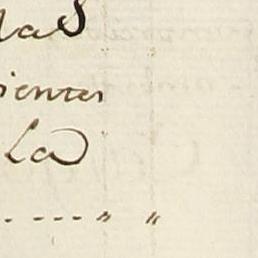 las
ientes
La
. - - - - " "